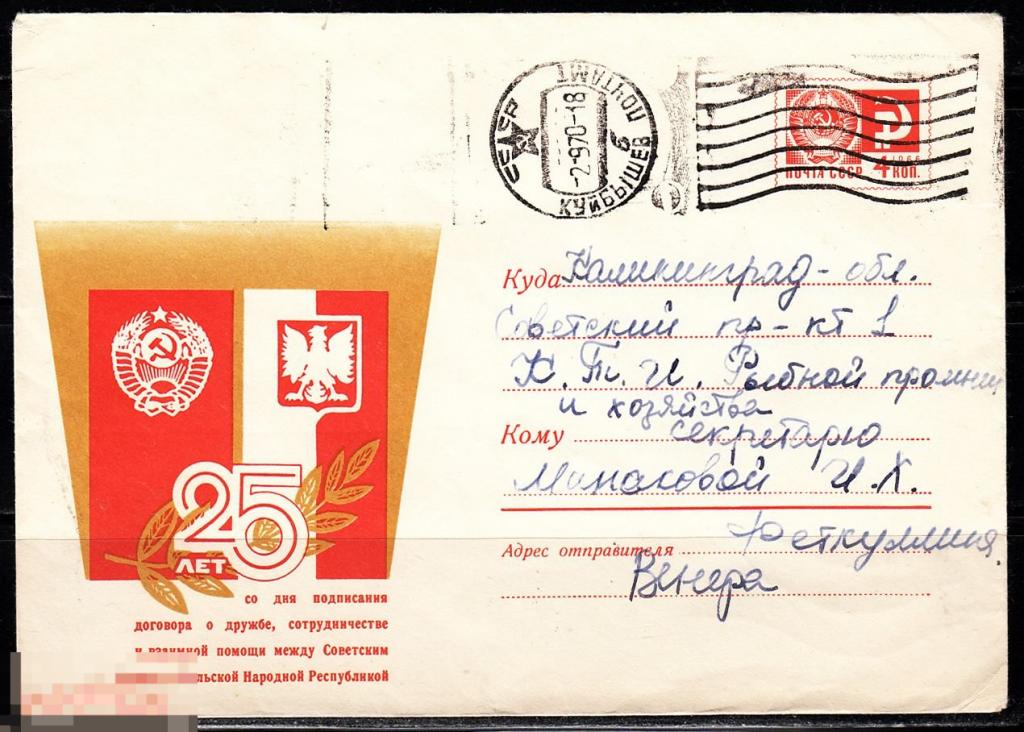 СССР
КУЙБЫШЕВ 6
ПОЧТАМТ
-2-970-18
ПОЧТА СССР
1966
4 КОП.
Куда Калининград - обл.
Советский пр-кт 1
К. Т. И. Рыбной промыш
и хозяйства
Кому секретарю
Минасовой И. Х.
Адрес отправителя
Венера
25
ЛЕТ
со дня подписания
договора о дружбе, сотрудничестве
и взаимной помощи между Советским
Народной Республикой